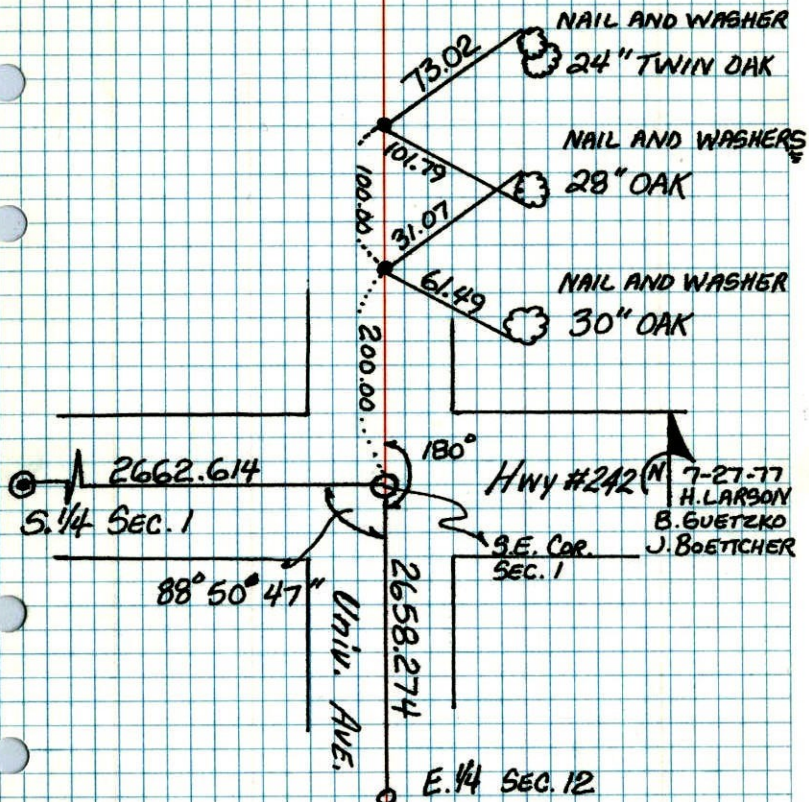 NAIL AND WASHER
24" TWIN OAK
73.02
NAIL AND WASHERS
28" OAK
101.79
100.00
31.07
61.49
NAIL AND WASHER
30" OAK
200.00
180°
2662.614
Hwy #242
N
7-27-77
H. LARSON
B. GUETZKO
J. BOETTCHER
S. 1/4 SEC. 1
S.E. COR.
SEC. 1
88° 50' 47"
2658.274
Univ. AVE.
E. 1/4 SEC. 12